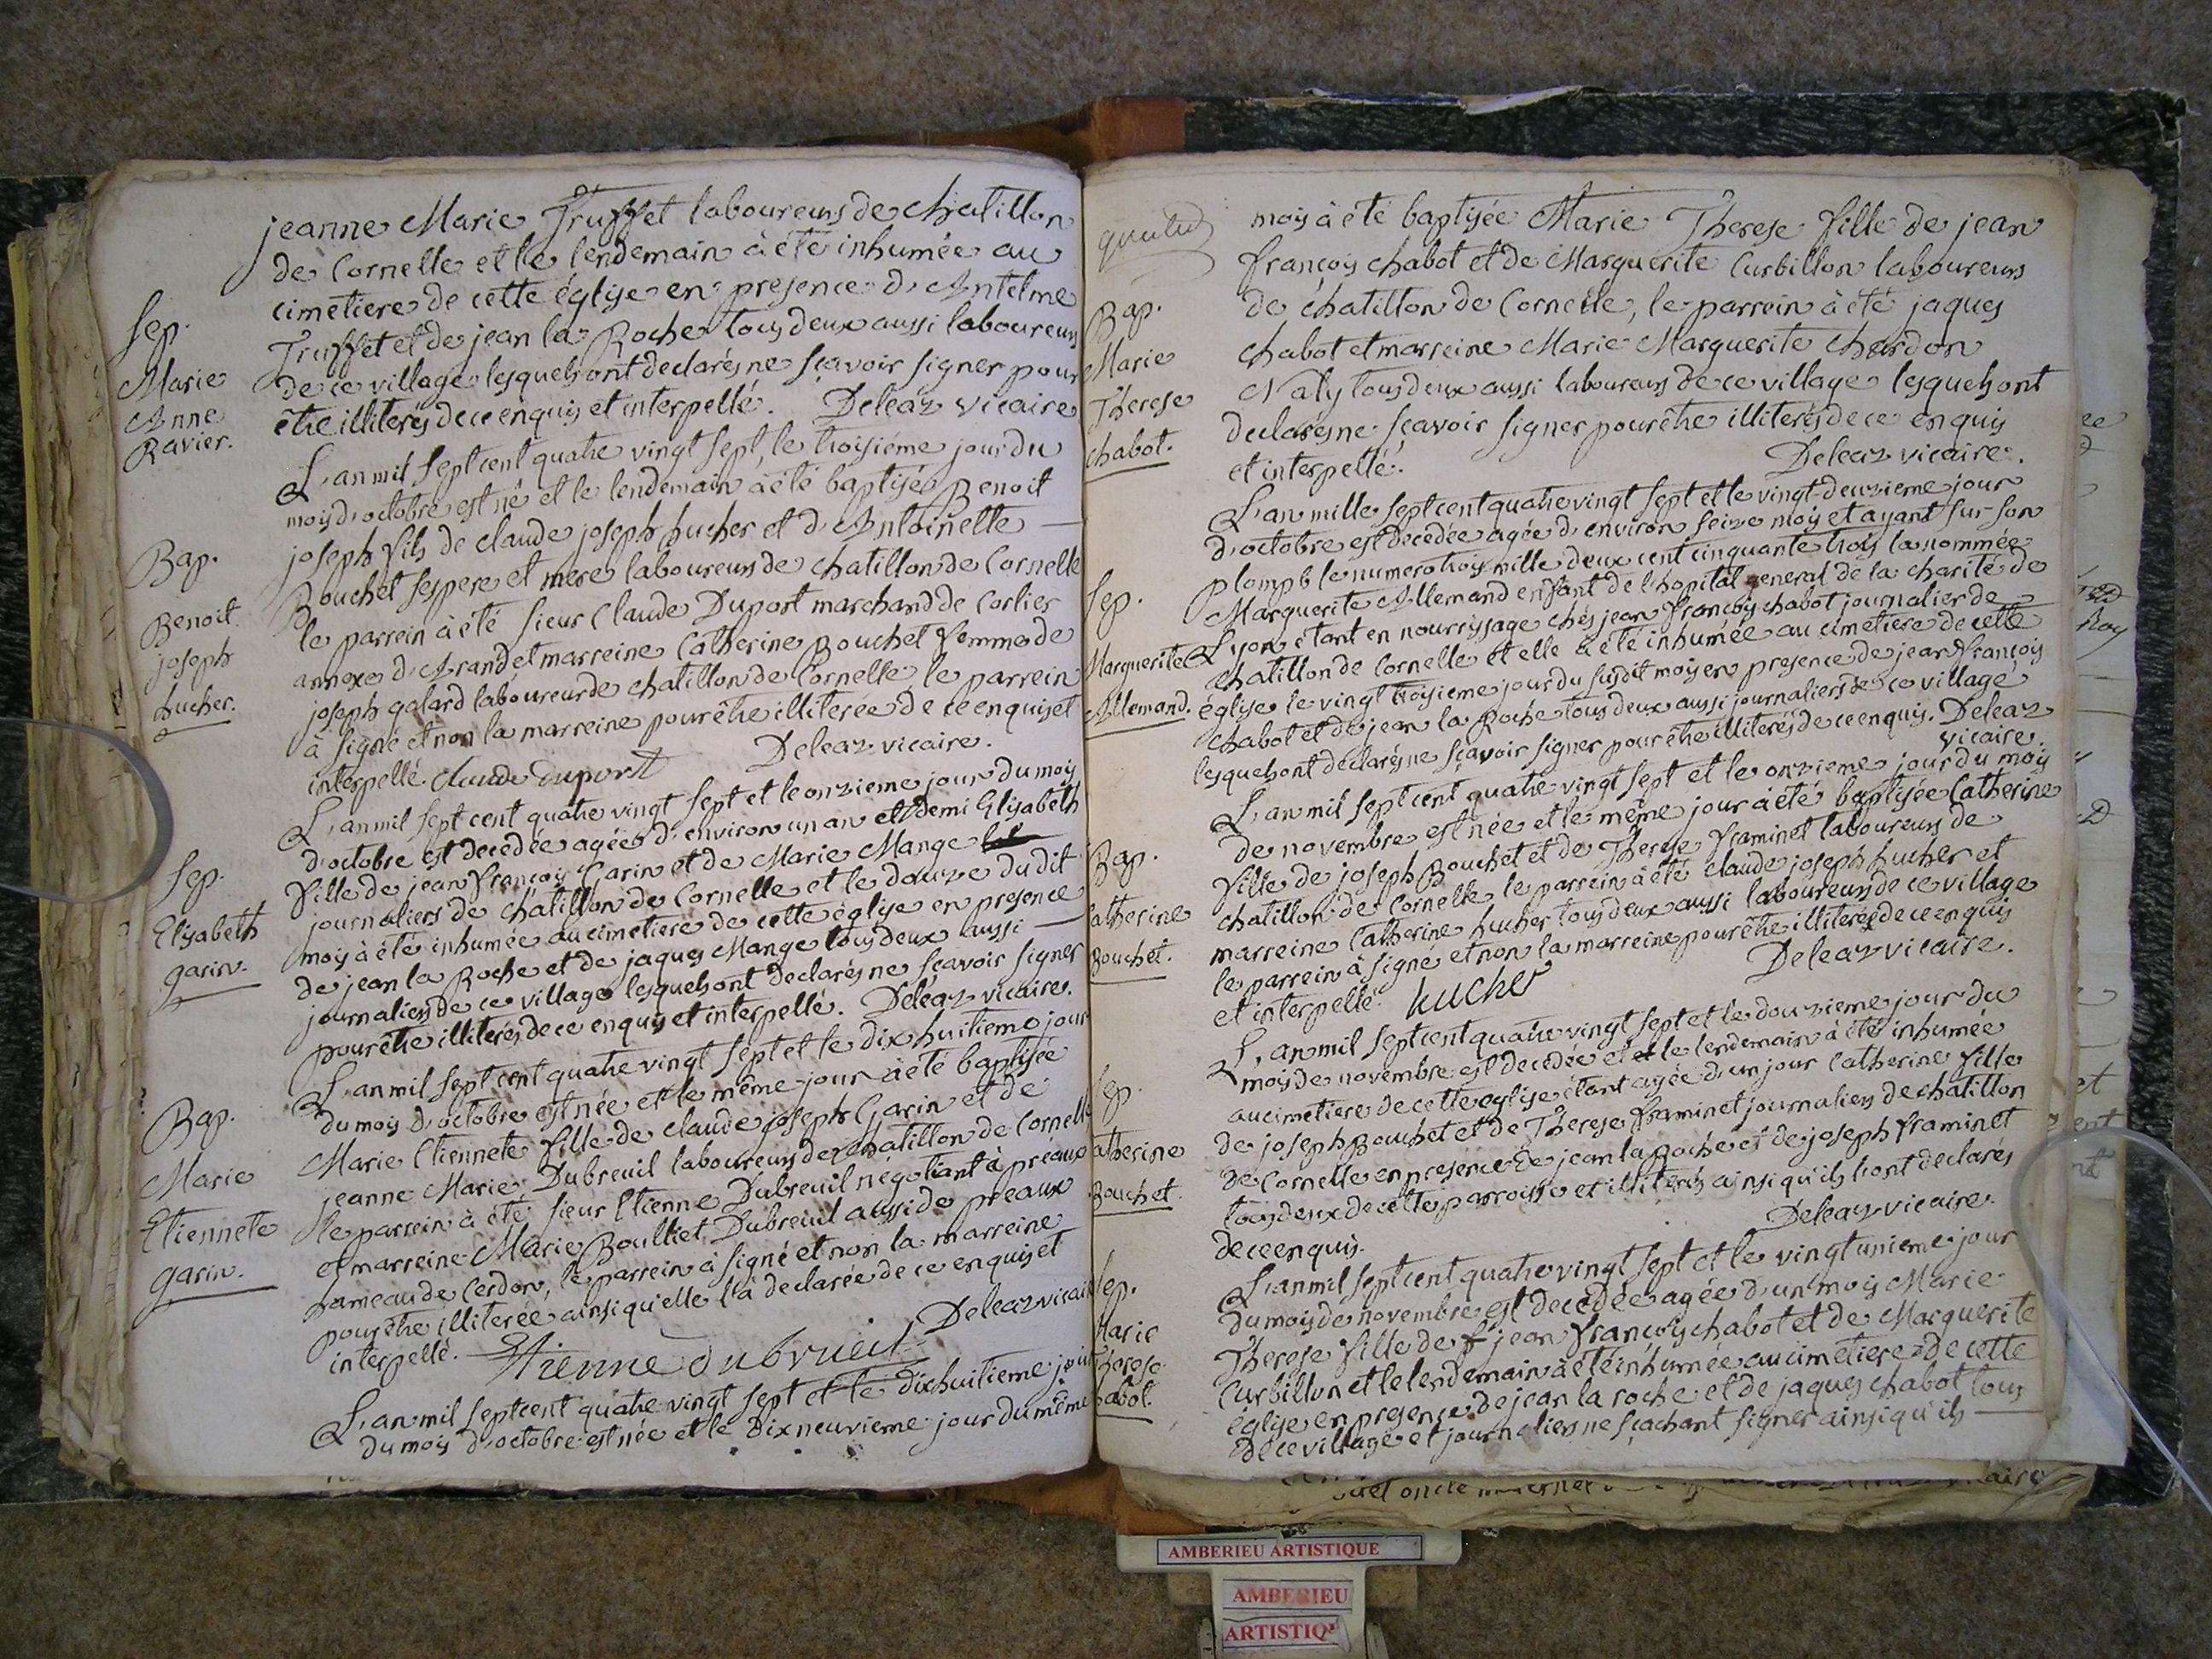 jeanne Marie Truffet laboureurs de chatillon
de Cornelle et le lendemain à été inhumée au
cimetiere de cette église en presence d'Antelme
Truffet et de jean la Roche tous deux aussi laboureurs
de ce village lesquels ont declarés ne sçavoir signer pour
être illiterés de ce enquis et interpellé. Deleaz vicaire
Sep.
Marie
Anne
Ravier.
L'an mil sept cent quatre vingt sept, le troisieme jour du
mois d'octobre est né et le lendemain à été baptisé Benoit
joseph fils de claude joseph hucher et d'Antoinette
Bouchet ses pere et mere laboureurs de chatillon de Cornelle
le parrein à été sieur Claude Duport marchand de Corlier
annexe d'Arandet marreine Catherine Bouchet femme de
joseph galard laboureur de chatillon de Cornelle le parrein
à signé et non la marreine pour être illiterée de ce enquis et
interpellé. claude duport Deleaz vicaire.
Bap.
Benoit
joseph
hucher.
L'an mil sept cent quatre vingt sept et le onzieme jour du mois
d'octobre est decedée agée d'environ un an et demi Elisabeth
fille de jean François Garin et de Marie Mange
journaliers de chatillon de Cornelle et le douze du dit
mois à été inhumée au cimetiere de cette église en presence
de jean la Roche et de jaques Mange tous deux aussi
journaliers de ce village lesquels ont declarés ne sçavoir signer
pour être illiterés de ce enquis et interpellé. Deleaz vicaire.
Sep.
Elisabeth
garin.
L'an mil sept cent quatre vingt sept et le dix huitieme jour
du mois d'octobre est née et le même jour à été baptisée
Marie Etiennete fille de claude joseph Garin et de
jeanne Marie Dubreuil laboureurs de chatillon de Cornelle
le parrein à été sieur Etienne Dubreuil negotiant à préaux
et marreine Marie Boulliet Dubreuil aussi de preaux
hameau de Cerdon, le parrein à signé et non la marreine
pour être illiterée ainsi qu'elle l'à declarée de ce enquis et
interpellé. Etienne dubrueil Deleaz vicaire
Bap.
Marie
Etiennete
garin.
L'an mil sept cent quatre vingt sept et le dixhuitieme jour
du mois d'octobre est née et le dix neuvieme jour du même
mois à été baptisée Marie Therese fille de jean
françois chabot et de Marguerite Curbillon laboureurs
de chatillon de Cornelle, le parrein à été jaques
chabot et marreine Marie Marguerite chardon
Naly tous deux aussi laboureurs de ce village lesquels ont
declarés ne sçavoir signer pour être illiterés de ce enquis
et interpellé. Deleaz vicaire.
Bap.
Marie
Therese
chabot.
L'an mille sept cent quatre vingt sept et le vingt-deuzieme jour
d'octobre est decedée agée d'environ seize mois et ayant sur son
plompb le numero trois mille deux cent cinquante trois la nommée
Marguerite Allemand enfant de l'hopital general de la charité de
Lyon etant en nourrissage chés jean françois chabot journalier de
chatillon de Cornelle et elle à été inhumée au cimetiere de cette
église le vingt troisieme jour du susdit mois en presence de jean françois
chabot et de jean la Roche tous deux aussi journaliers de ce village
lesquels ont declarés ne sçavoir signer pour être illiterés de ce enquis. Deleaz
vicaire.
Sep.
Marguerite
Allemand.
L'an mil sept cent quatre vingt sept et le onzieme jour du mois
de novembre est née et le même jour à été baptisée Catherine
fille de joseph Bouchet et de Therese Framinet laboureurs de
chatillon de Cornelle le parrein à été claude joseph hucher et
marreine Catherine hucher tous deux aussi laboureurs de ce village
le parrein à signé et non la marreine pour être illiterée de ce enquis
et interpellé. hucher Deleaz vicaire.
Bap.
Catherine
Bouchet.
L'an mil sept cent quatre vingt sept et le douzieme jour du
mois de novembre est decedée et et le lendemain à été inhumée
au cimetiere de cette eglise étant agée d'un jour Catherine fille
de joseph Bouchet et de Therese framinet journaliers de chatillon
de Cornelle en presence de jean la Roche et de joseph framinet
tous deux de cette parroisse et illiterés ainsi qu'ils l'ont declarés
de ce enquis. Deleaz vicaire.
Sep.
atherine
Bouchet.
L'an mil sept cent quatre vingt sept et le vingt unieme jour
du mois de novembre est decedée agée d'un mois Marie
Therese fille de jean françois chabot et de Marguerite
Curbillon et le lendemain à été inhumée au cimetiere de cette
église en presence de jean la roche et de jaques chabot tous
de ce village et journaliers ne sçachant signer ainsi qu'ils
Sep.
Marie
Therese
habot.
AMBERIEU ARTISTIQUE
AMBERIEU
ARTISTIQ